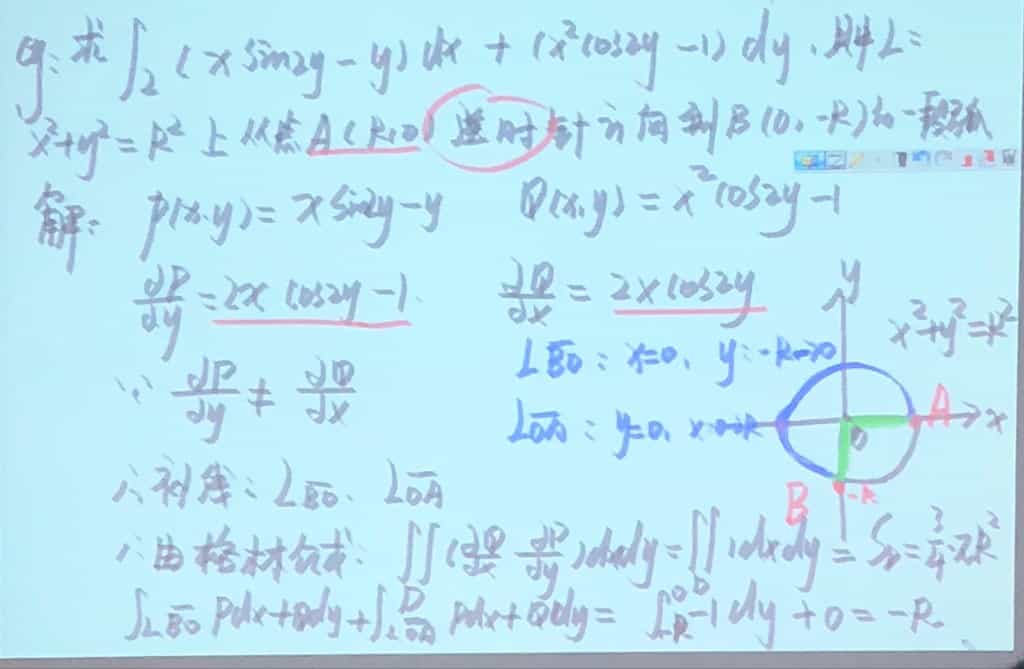 eg: 求 ∫L (x sin2y - y) dx + (x²cos2y - 1) dy, 其中L:
x²+y²=R² 上从点A(R,0) 逆时针方向到B(0,-R)的一段弧
解: P(x,y) = x sin2y - y Q(x,y) = x²cos2y - 1
∂P/∂y = 2x cos2y - 1. ∂Q/∂x = 2x cos2y
∵ ∂P/∂y ≠ ∂Q/∂x
L_BO: x=0, y: -R→0
L_OA: y=0, x: 0→R
y
x²+y²=R²
A
x
O
B
-R
∴ 补线: L_BO. L_OA
∴ 由格林公式: ∬(∂Q/∂x - ∂P/∂y)dxdy = ∬_D 1dxdy = S_D = 3/4·πR²
∫L_BO Pdx+Qdy + ∫L_OA Pdx+Qdy = ∫_{-R}^0 -1dy + 0 = -R.